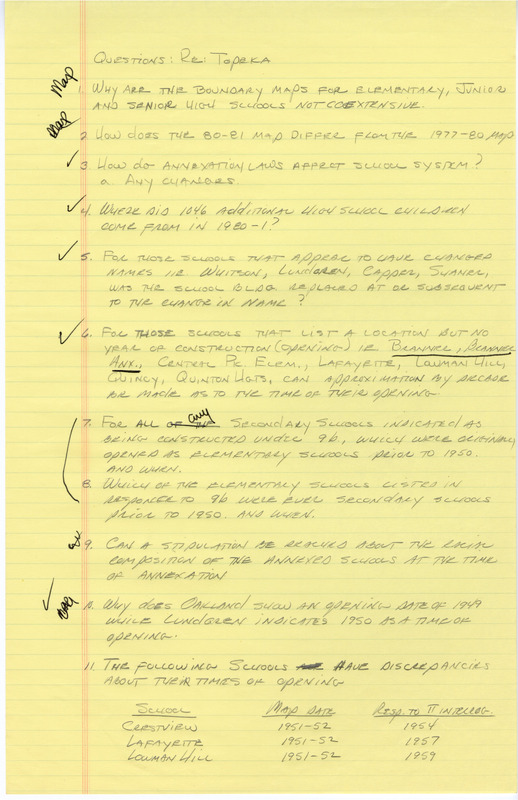 QUESTIONS: RE: TOPEKA
Map 1. WHY ARE THE BOUNDARY MAPS FOR ELEMENTARY, JUNIOR
AND SENIOR HIGH SCHOOLS NOT COEXTENSIVE.
Map 2. HOW DOES THE 80-81 MAP DIFFER FROM THE 1977-80 MAP
✓ 3. HOW DO ANNEXATION LAWS AFFECT SCHOOL SYSTEM?
a. ANY CHANGES.
✓ 4. WHERE DID 1046 ADDITIONAL HIGH SCHOOL CHILDREN
COME FROM IN 1980-1?
✓ 5. FOR THOSE SCHOOLS THAT APPEAR TO HAVE CHANGED
NAMES IE WHITSON, LUNDGREN, CAPPER, SHANER,
WAS THE SCHOOL BLDG REPLACED AT OR SUBSEQUENT
TO THE CHANGE IN NAME?
✓ 6. FOR THOSE SCHOOLS THAT LIST A LOCATION BUT NO
YEAR OF CONSTRUCTION (OPENING) IE BRANNER, BRANNER
ANX., CENTRAL PK ELEM., LAFAYETTE, LOWMAN HILL,
QUINCY, QUINTON HGTS, CAN APPROXIMATION BY DECADE
BE MADE AS TO THE TIME OF THEIR OPENING.
7. FOR ALL OF THE any SECONDARY SCHOOLS INDICATED AS
BEING CONSTRUCTED UNDER 9b, WHICH WERE ORIGINALLY
OPENED AS ELEMENTARY SCHOOLS PRIOR TO 1950.
AND WHEN.
8. WHICH OF THE ELEMENTARY SCHOOLS LISTED IN
RESPONSE TO 9b WERE EVER SECONDARY SCHOOLS
PRIOR TO 1950. AND WHEN.
9. CAN A STIPULATION BE REACHED ABOUT THE RACIAL
COMPOSITION OF THE ANNEXED SCHOOLS AT THE TIME
OF ANNEXATION
✓ 10. WHY DOES OAKLAND SHOW AN OPENING DATE OF 1949
WHILE LUNDGREN INDICATES 1950 AS A TIME OF
OPENING.
11. THE FOLLOWING SCHOOLS HAVE DISCREPANCIES
ABOUT THEIR TIMES OF OPENING
SCHOOL MAP DATE RESP. TO Π INTERROG.
CRESTVIEW 1951-52 1954
LAFAYETTE 1951-52 1957
LOWMAN HILL 1951-52 1959